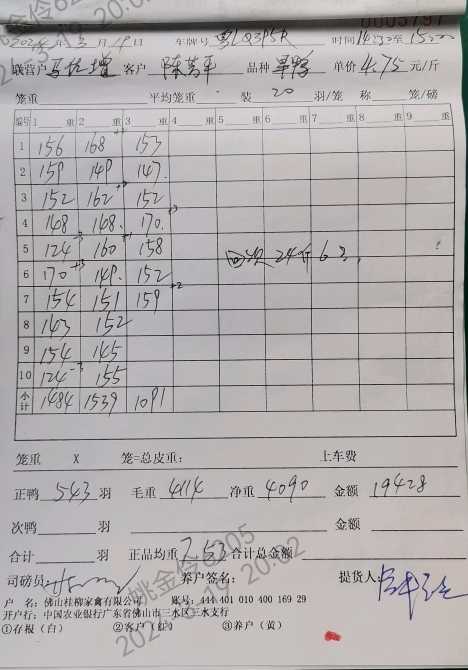 0005797
车牌号 粤LQ395R 时间
联营户 客户 陈芳平 品种 单价 4.75 元/斤
笼重 平均笼重 装 20 羽/笼 称 笼/磅
编号 1 重 2 重 3 重 4 重 5 重 6 重 7 重 8 重 9 重
1 156 168 153
2 159 149 147
3 152 162 152
4 148 148 170
5 124 160 158
6 170 149 152
7 154 151 159
8 143 152
9 154 145
10 124 155
小计 1484 1539 1091
笼重 X 笼=总皮重: 上车费
正鸭 543 羽 毛重 4114 净重 4090 金额 19428
次鸭 羽 金额
合计 羽 正品均重 7.53 合计总金额
司磅员 养户签名: 提货人
户 名:佛山桂柳家禽有限公司 账号:444 401 010 400 169 29
开户行:中国农业银行广东省佛山市三水区三水支行
①存根(白) ②客户(红) ③养户(黄)